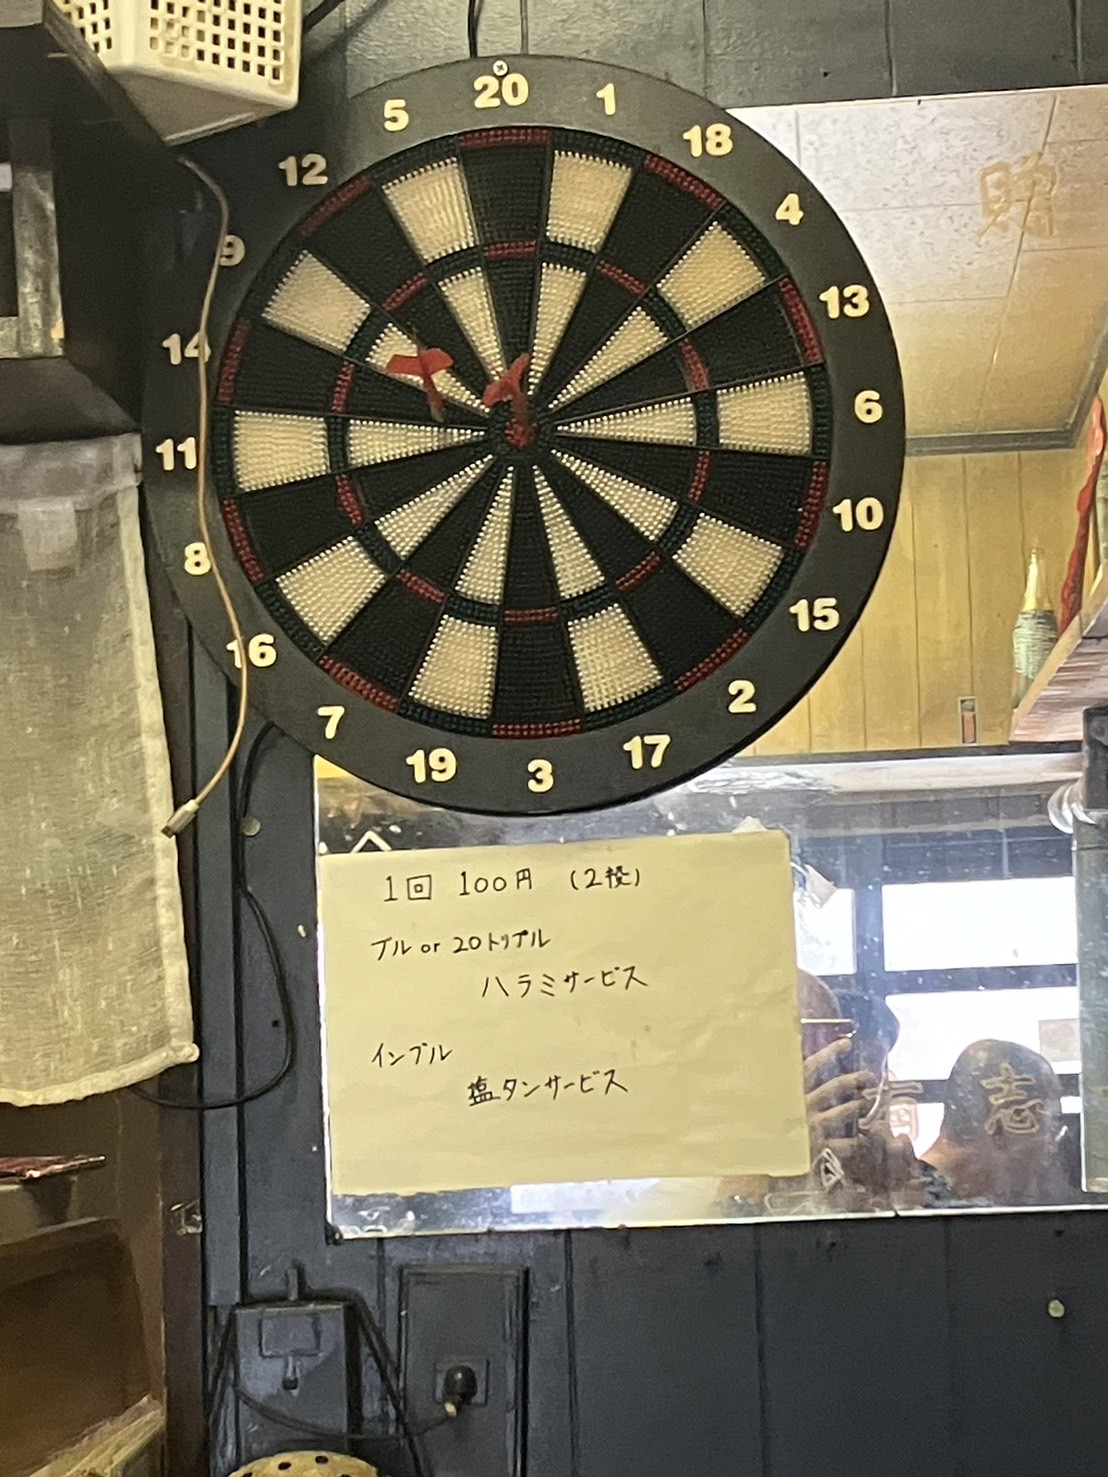 20
1
18
4
13
6
10
15
2
17
3
19
7
16
8
11
14
9
12
5
1回 100円 (2投)
ブル or 20トリプル
ハラミサービス
インブル
塩タンサービス
志